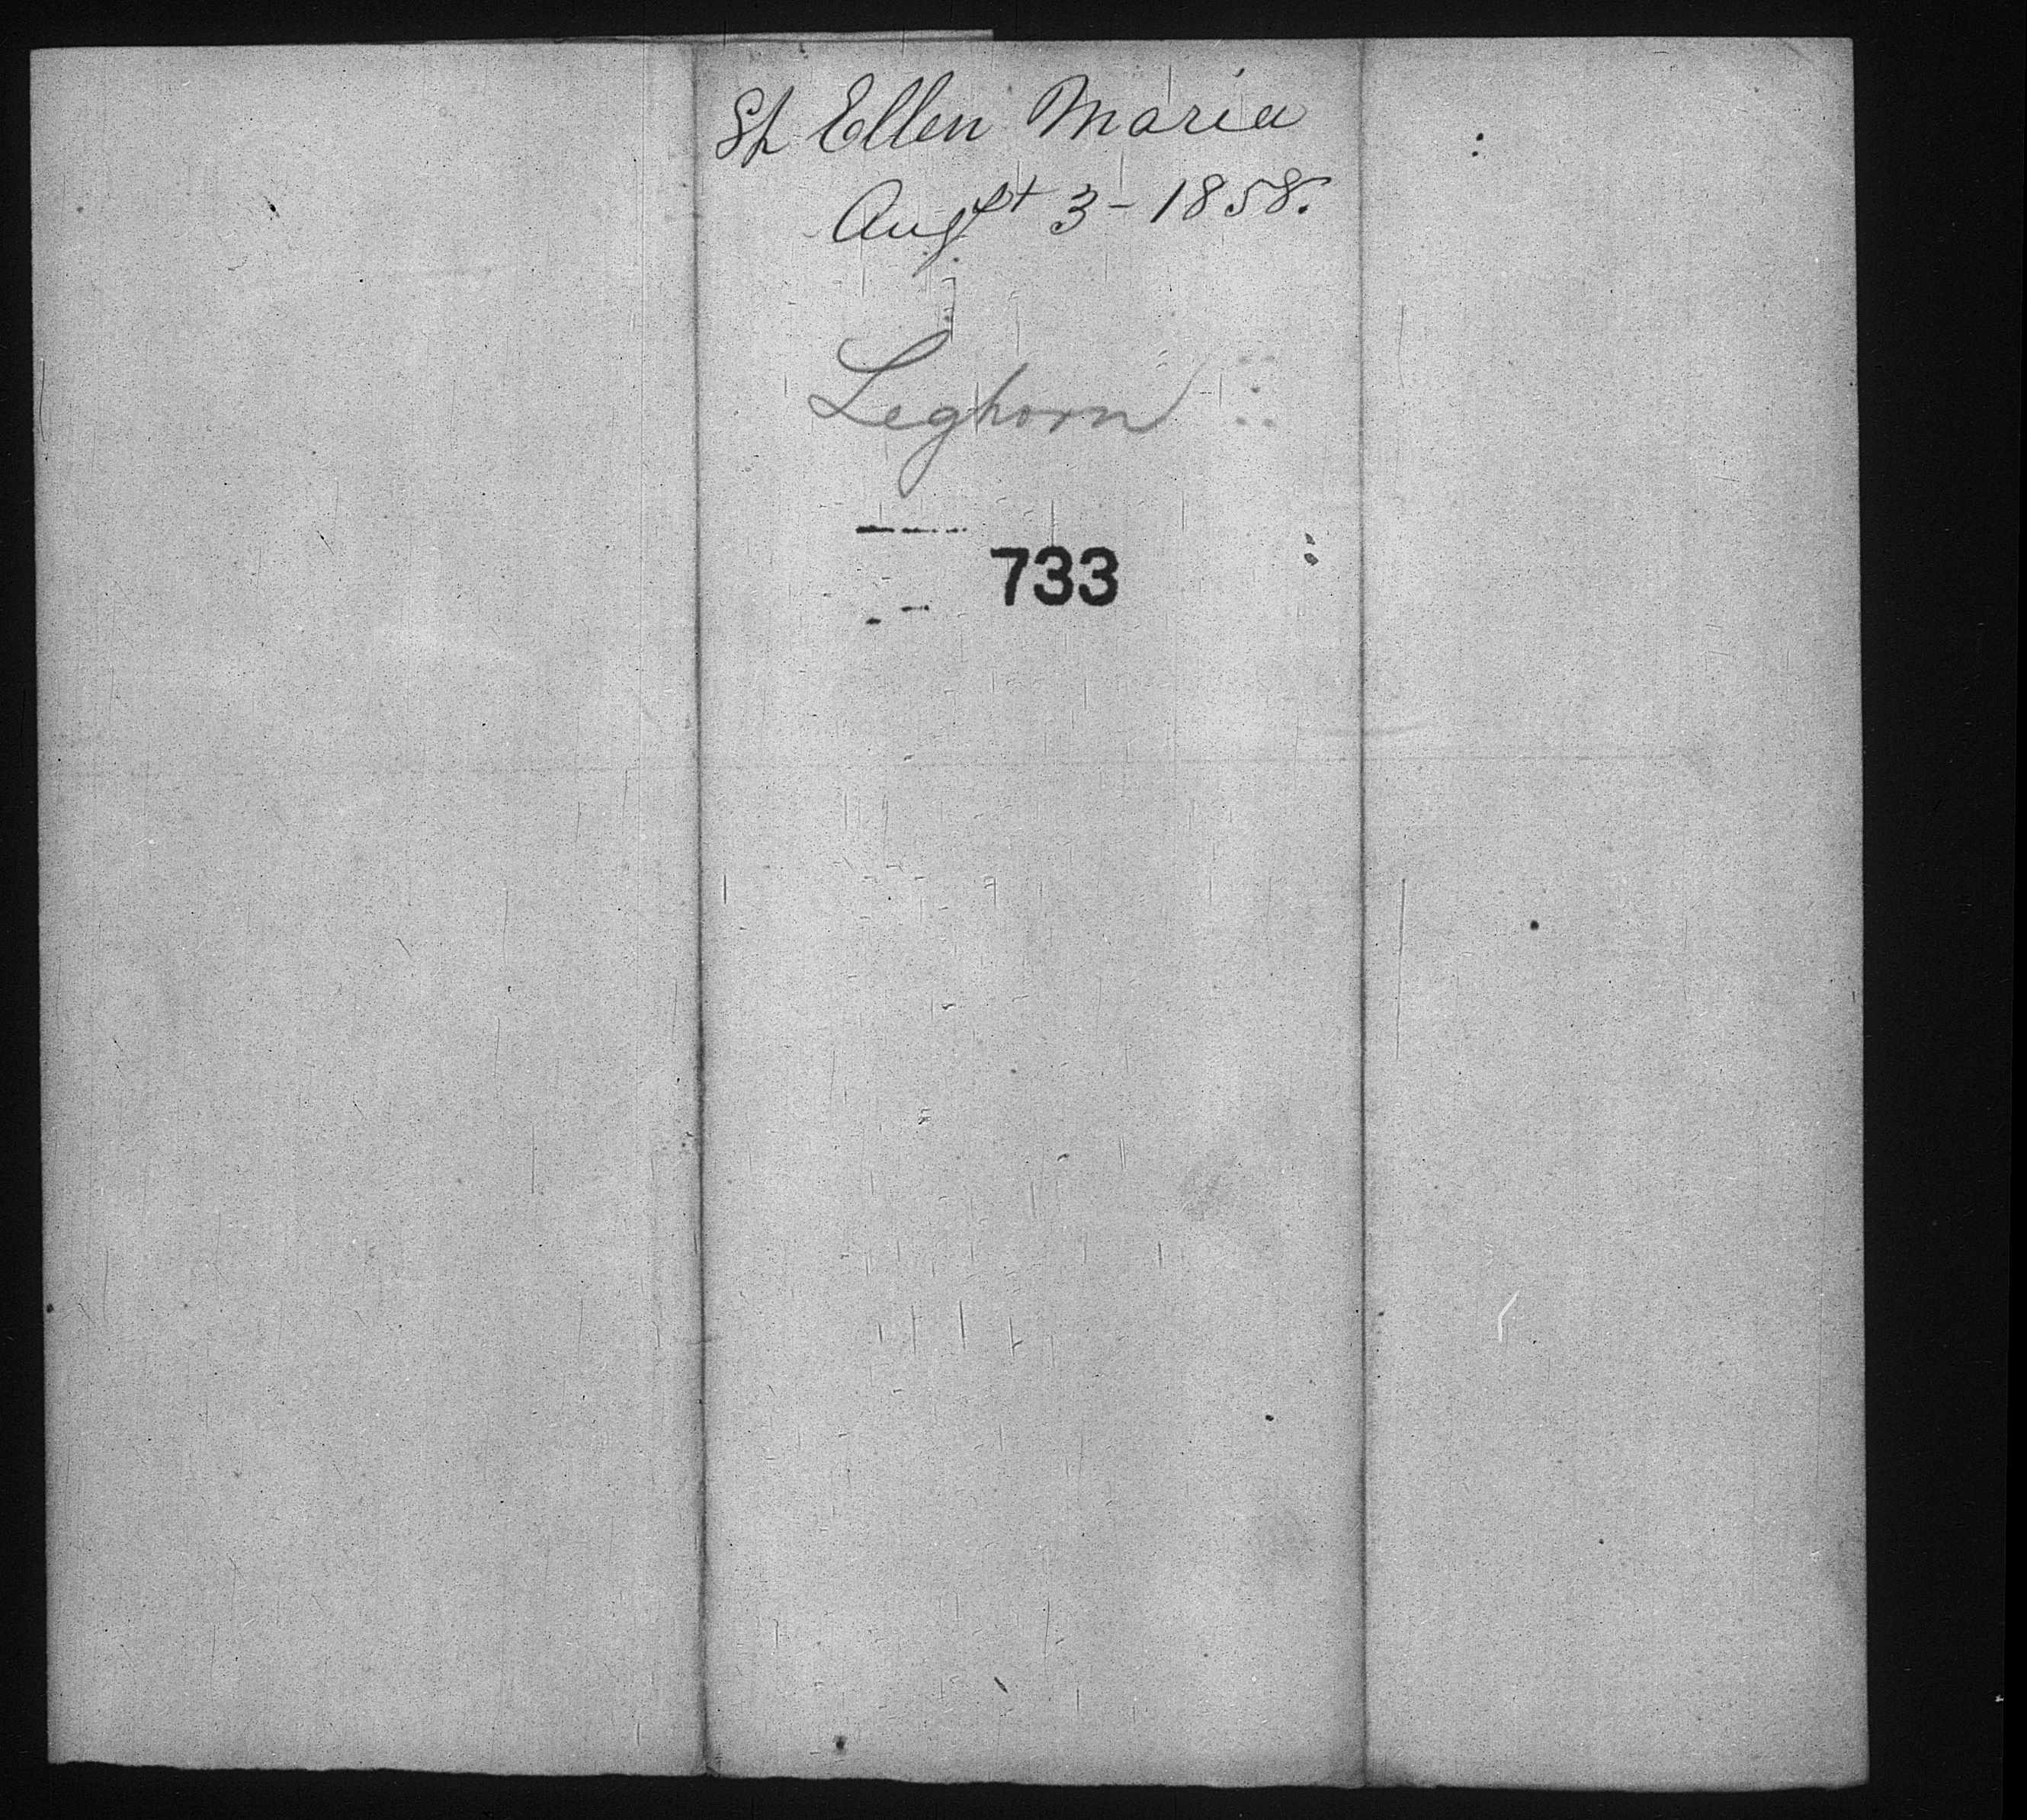 Sh Ellen Maria
Augst 3 - 1858.
Leghorn
733